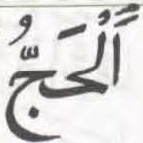 اَلْحَجُّ